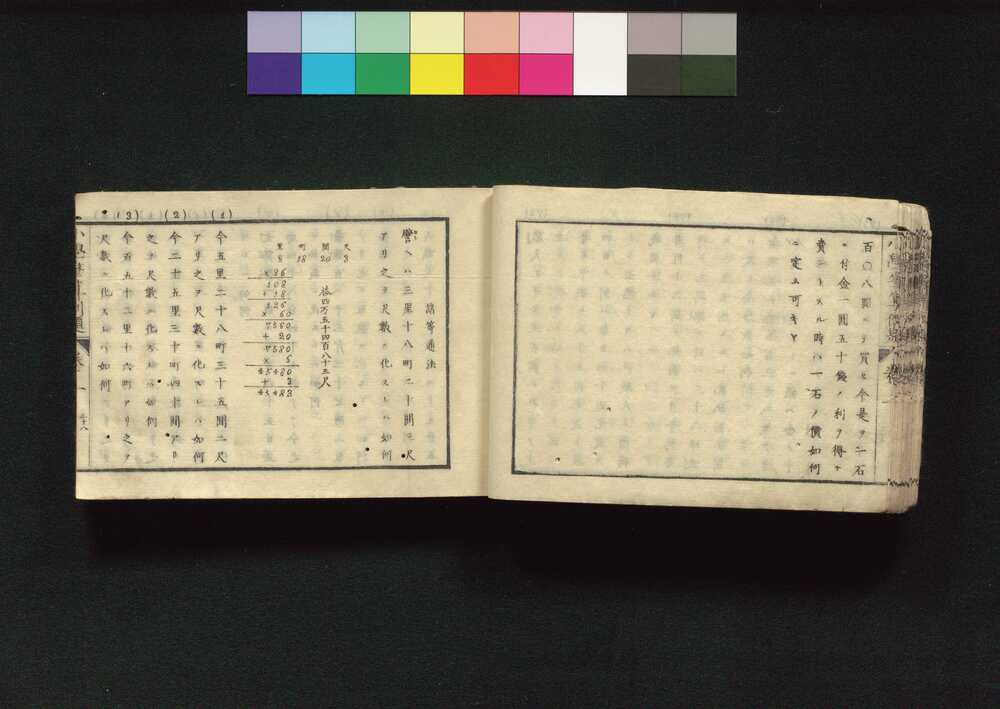 百〇八圓ニテ買ヒ今是ヲ一石
ニ付金一圓五十錢ノ利ヲ得テ
賣ントスル時ハ一石ノ價如何
ニ定ム可キヤ
諸等通法
譬ヘハ三里十八町二十間三尺
アリ之ヲ尺數ニ化スレハ如何
里 町 間 尺
3 18 20 3
× 36
108
+ 18
126
× 60
7560
+ 20
7580
× 6
45480
+ 3
45483
答四万五千四百八十三尺
(1) 今五里二十八町三十五間二尺
アリ之ヲ尺數ニ化スレハ如何
(2) 今二十五里三十町四十間アリ
之ヲ尺數ニ化スレハ如何
(3) 今百五十二里十六町アリ之ヲ
尺數ニ化スレハ如何